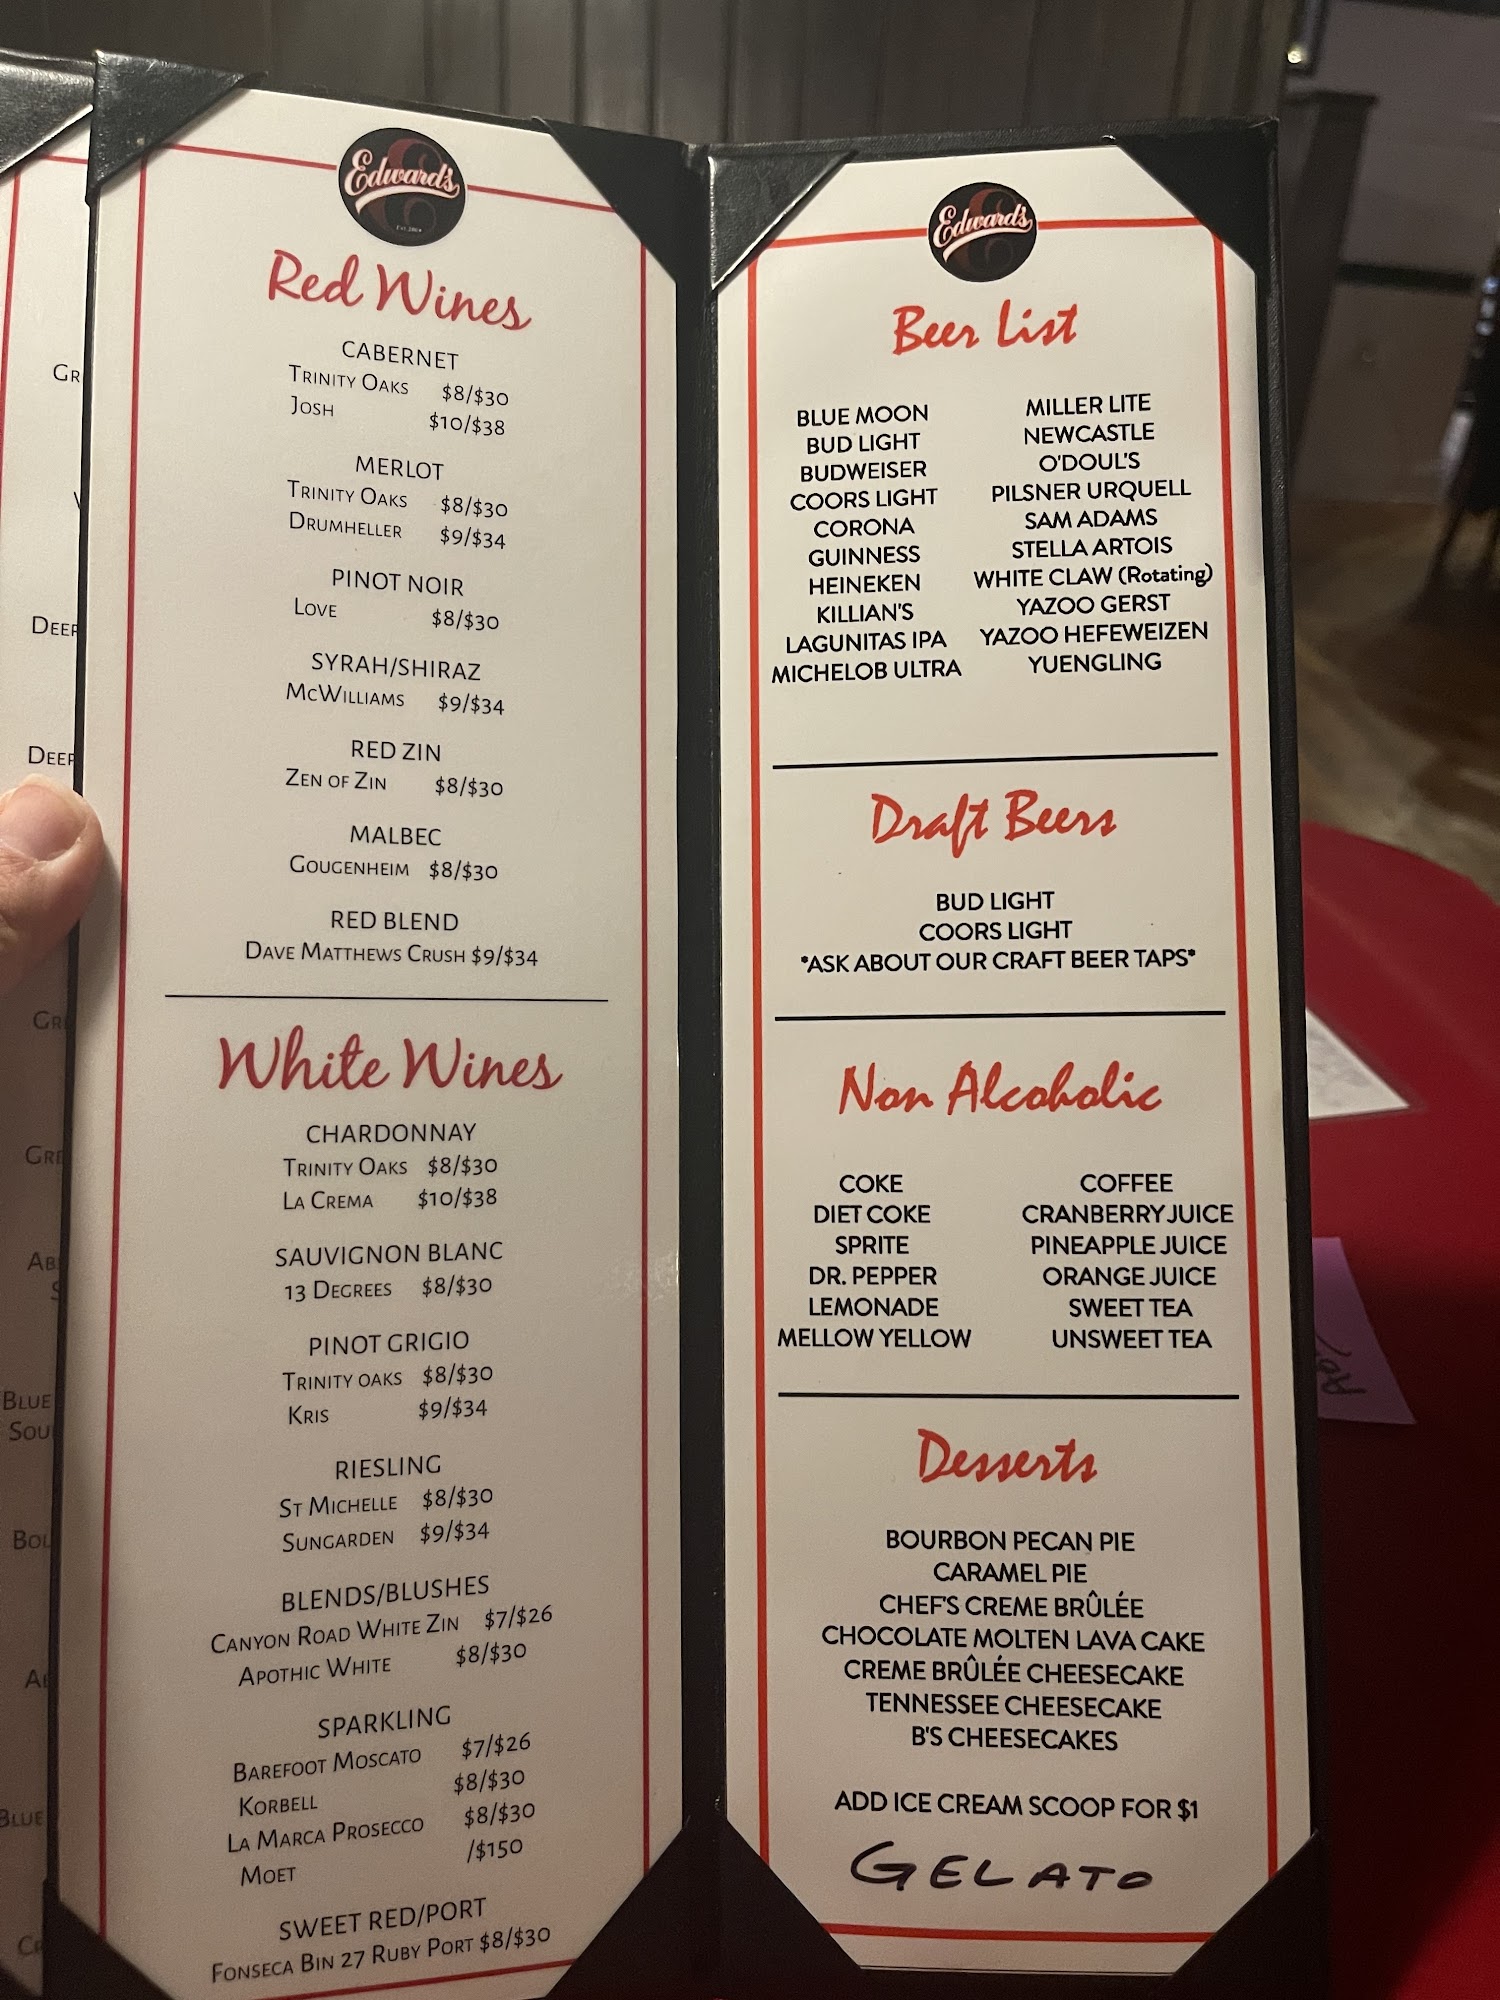 Edward's
Red Wines
CABERNET
TRINITY OAKS $8/$30
JOSH $10/$38
MERLOT
TRINITY OAKS $8/$30
DRUMHELLER $9/$34
PINOT NOIR
LOVE $8/$30
SYRAH/SHIRAZ
MCWILLIAMS $9/$34
RED ZIN
ZEN OF ZIN $8/$30
MALBEC
GOUGENHEIM $8/$30
RED BLEND
DAVE MATTHEWS CRUSH $9/$34
White Wines
CHARDONNAY
TRINITY OAKS $8/$30
LA CREMA $10/$38
SAUVIGNON BLANC
13 DEGREES $8/$30
PINOT GRIGIO
TRINITY OAKS $8/$30
KRIS $9/$34
RIESLING
ST MICHELLE $8/$30
SUNGARDEN $9/$34
BLENDS/BLUSHES
CANYON ROAD WHITE ZIN $7/$26
APOTHIC WHITE $8/$30
SPARKLING
BAREFOOT MOSCATO $7/$26
KORBELL $8/$30
LA MARCA PROSECCO $8/$30
MOET /$150
SWEET RED/PORT
FONSECA BIN 27 RUBY PORT $8/$30
Edward's
Beer List
BLUE MOON
BUD LIGHT
BUDWEISER
COORS LIGHT
CORONA
GUINNESS
HEINEKEN
KILLIAN'S
LAGUNITAS IPA
MICHELOB ULTRA
MILLER LITE
NEWCASTLE
O'DOUL'S
PILSNER URQUELL
SAM ADAMS
STELLA ARTOIS
WHITE CLAW (Rotating)
YAZOO GERST
YAZOO HEFEWEIZEN
YUENGLING
Draft Beers
BUD LIGHT
COORS LIGHT
*ASK ABOUT OUR CRAFT BEER TAPS*
Non Alcoholic
COKE
DIET COKE
SPRITE
DR. PEPPER
LEMONADE
MELLOW YELLOW
COFFEE
CRANBERRY JUICE
PINEAPPLE JUICE
ORANGE JUICE
SWEET TEA
UNSWEET TEA
Desserts
BOURBON PECAN PIE
CARAMEL PIE
CHEF'S CREME BRÛLÉE
CHOCOLATE MOLTEN LAVA CAKE
CREME BRÛLÉE CHEESECAKE
TENNESSEE CHEESECAKE
B'S CHEESECAKES
ADD ICE CREAM SCOOP FOR $1
GELATO